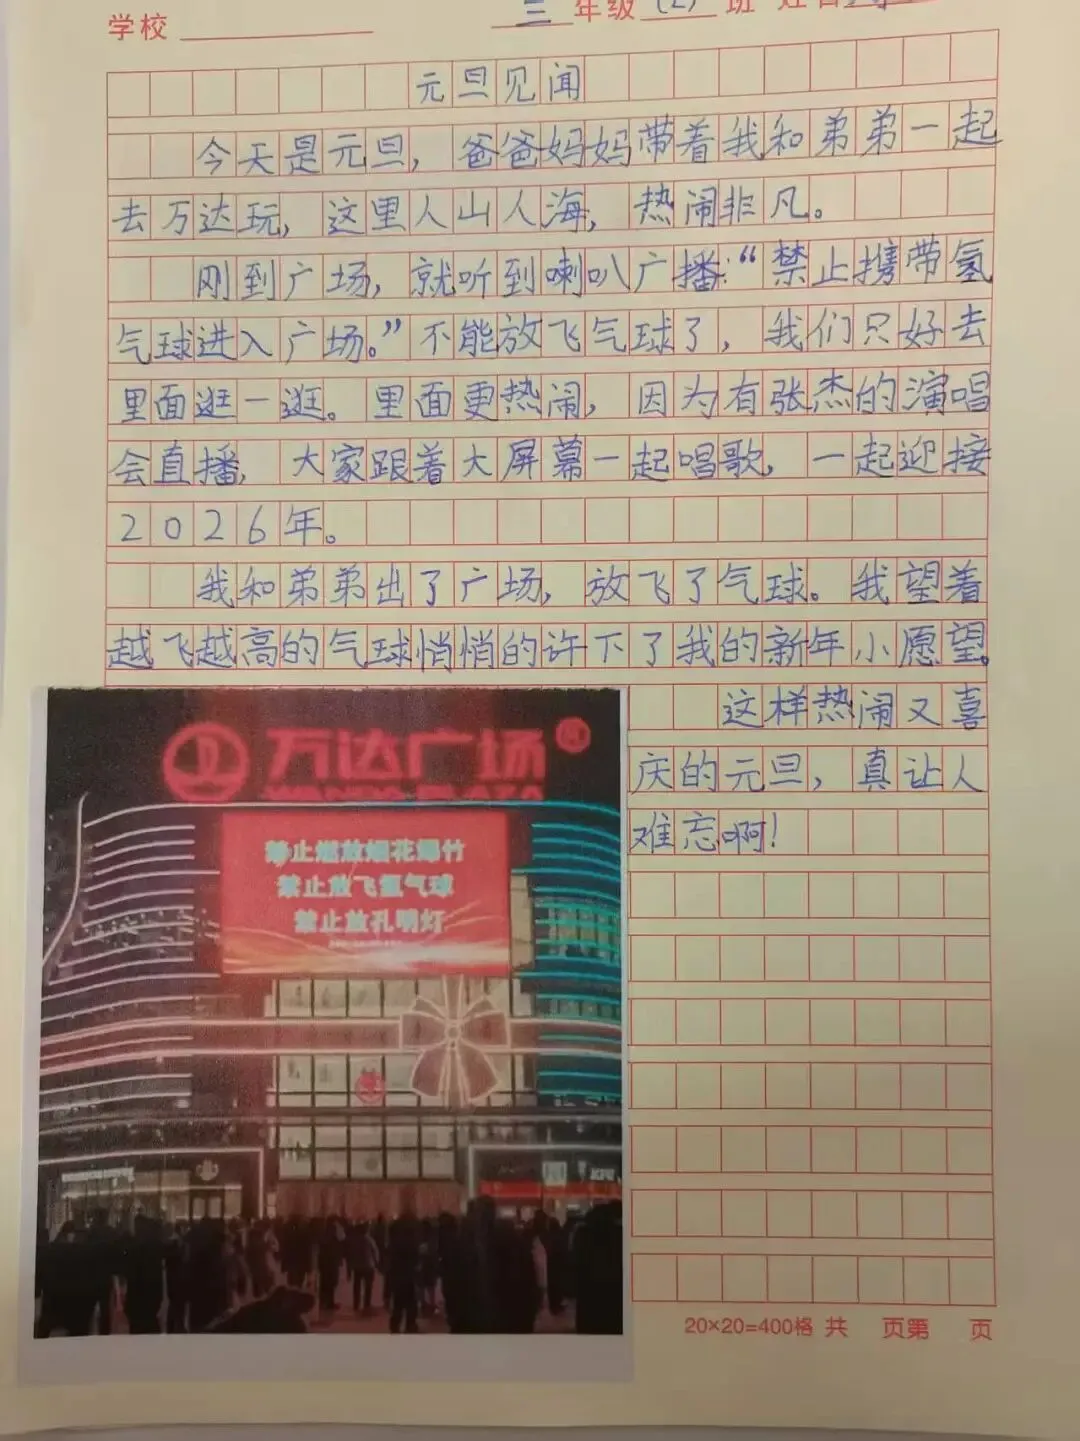 学校 三年级(2)班 姓名
元旦见闻
今天是元旦，爸爸妈妈带着我和弟弟一起
去万达玩，这里人山人海，热闹非凡。
刚到广场，就听到喇叭广播：“禁止携带氢
气球进入广场。”不能放飞气球了，我们只好去
里面逛一逛。里面更热闹，因为有张杰的演唱
会直播，大家跟着大屏幕一起唱歌，一起迎接
2026年。
我和弟弟出了广场，放飞了气球。我望着
越飞越高的气球悄悄的许下了我的新年小愿望。
这样热闹又喜
庆的元旦，真让人
难忘啊！
万达广场
WANDA PLAZA
禁止燃放烟花爆竹
禁止放飞氢气球
禁止放孔明灯
20×20=400格 共 页第 页